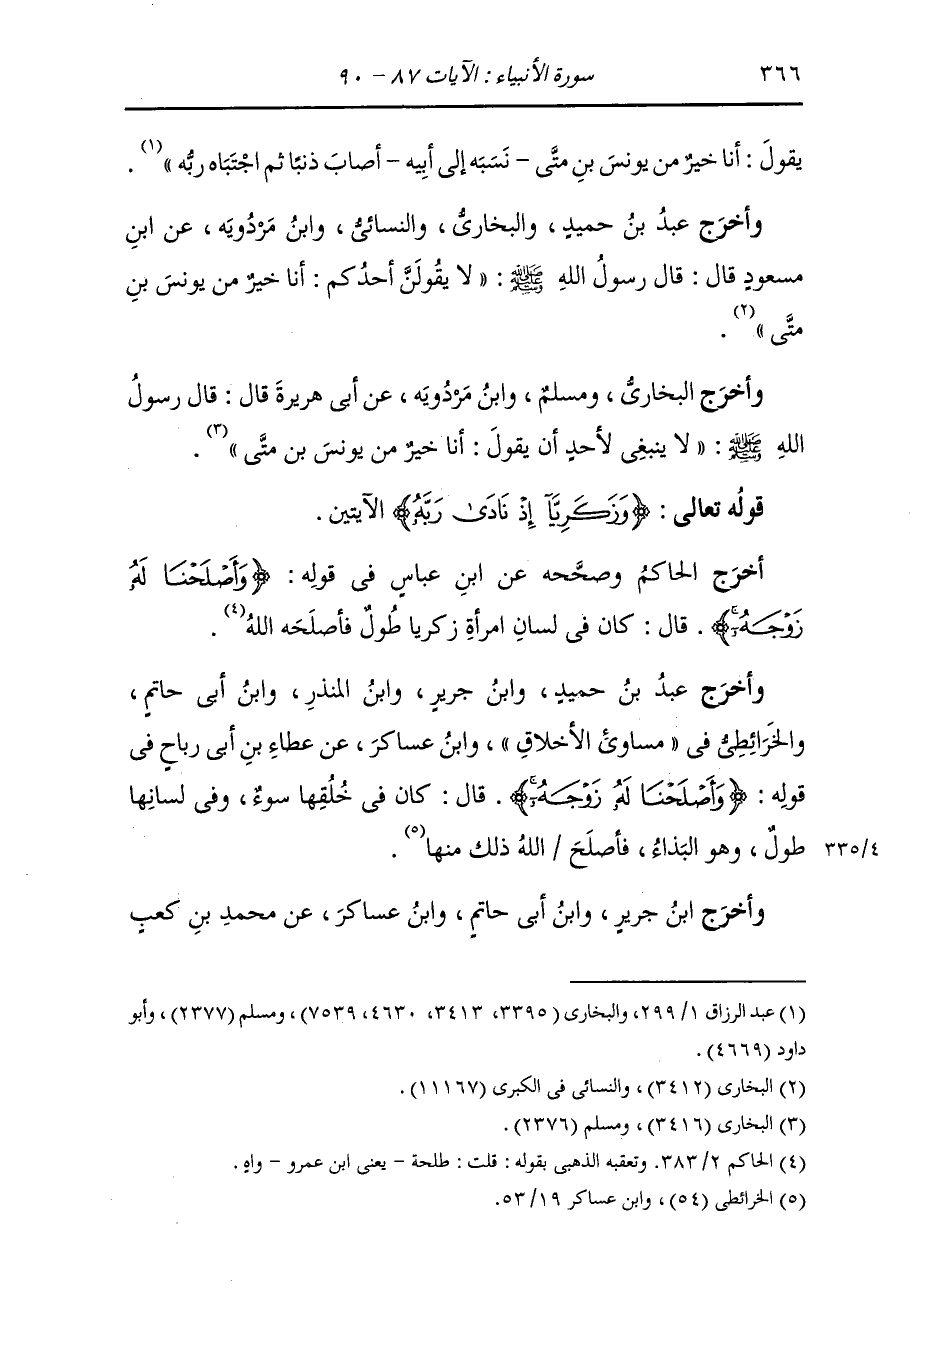 ٣٦٦ سورة الأنبياء : الآيات ٨٧ - ٩٠
يقولَ : أنا خيرٌ من يونسَ بنِ متَّى - نَسَبَه إلى أبِيه - أصابَ ذنبًا ثم اجْتَبَاه ربُّه »(١) .
وأخرَج عبدُ بنُ حميدٍ ، والبخارىُّ ، والنسائىُّ ، وابنُ مَرْدُويَه ، عن ابنِ
مسعودٍ قال : قال رسولُ اللهِ ﷺ : « لا يقُولَنَّ أحدُكم : أنا خيرٌ من يونسَ بنِ
متَّى »(٢) .
وأخرَج البخارىُّ ، ومسلمٌ ، وابنُ مَرْدُويَه ، عن أبى هريرةَ قال : قال رسولُ
اللهِ ﷺ : « لا ينبغِى لأحدٍ أن يقولَ : أنا خيرٌ من يونسَ بن متَّى »(٣) .
قولُه تعالى : ﴿وَزَكَرِيَّآ إِذْ نَادَىٰ رَبَّهُۥ﴾ الآيتين .
أخرَج الحاكمُ وصحَّحه عن ابنِ عباسٍ فى قولِه : ﴿وَأَصْلَحْنَا لَهُۥ
زَوْجَهُۥٓۚ﴾ . قال : كان فى لسانِ امرأةِ زكريا طُولٌ فأصلَحَه اللهُ(٤) .
وأخرَج عبدُ بنُ حميدٍ ، وابنُ جريرٍ ، وابنُ المنذرِ ، وابنُ أبى حاتمٍ ،
والخَرَائِطِىُّ فى « مساوئ الأخلاقِ » ، وابنُ عساكرَ ، عن عطاءِ بنِ أبى رباحٍ فى
قولِه : ﴿وَأَصْلَحْنَا لَهُۥ زَوْجَهُۥٓۚ﴾ . قال : كان فى خُلُقِها سوءٌ ، وفى لسانِها
٣٣٥/٤ طولٌ ، وهو البَذاءُ ، فأصلَحَ / اللهُ ذلك منها(٥) .
وأخرَج ابنُ جريرٍ ، وابنُ أبى حاتمٍ ، وابنُ عساكرَ ، عن محمدِ بنِ كعبٍ
(١) عبد الرزاق ١/ ٢٩٩، والبخارى (٣٣٩٥، ٣٤١٣، ٤٦٣٠، ٧٥٣٩) ، ومسلم (٢٣٧٧) ، وأبو
داود (٤٦٦٩) .
(٢) البخارى (٣٤١٢) ، والنسائى فى الكبرى (١١١٦٧) .
(٣) البخارى (٣٤١٦) ، ومسلم (٢٣٧٦) .
(٤) الحاكم ٢/ ٣٨٣. وتعقبه الذهبى بقوله : قلت : طلحة - يعنى ابن عمرو - واهٍ .
(٥) الخرائطى (٥٤) ، وابن عساكر ١٩/ ٥٣.